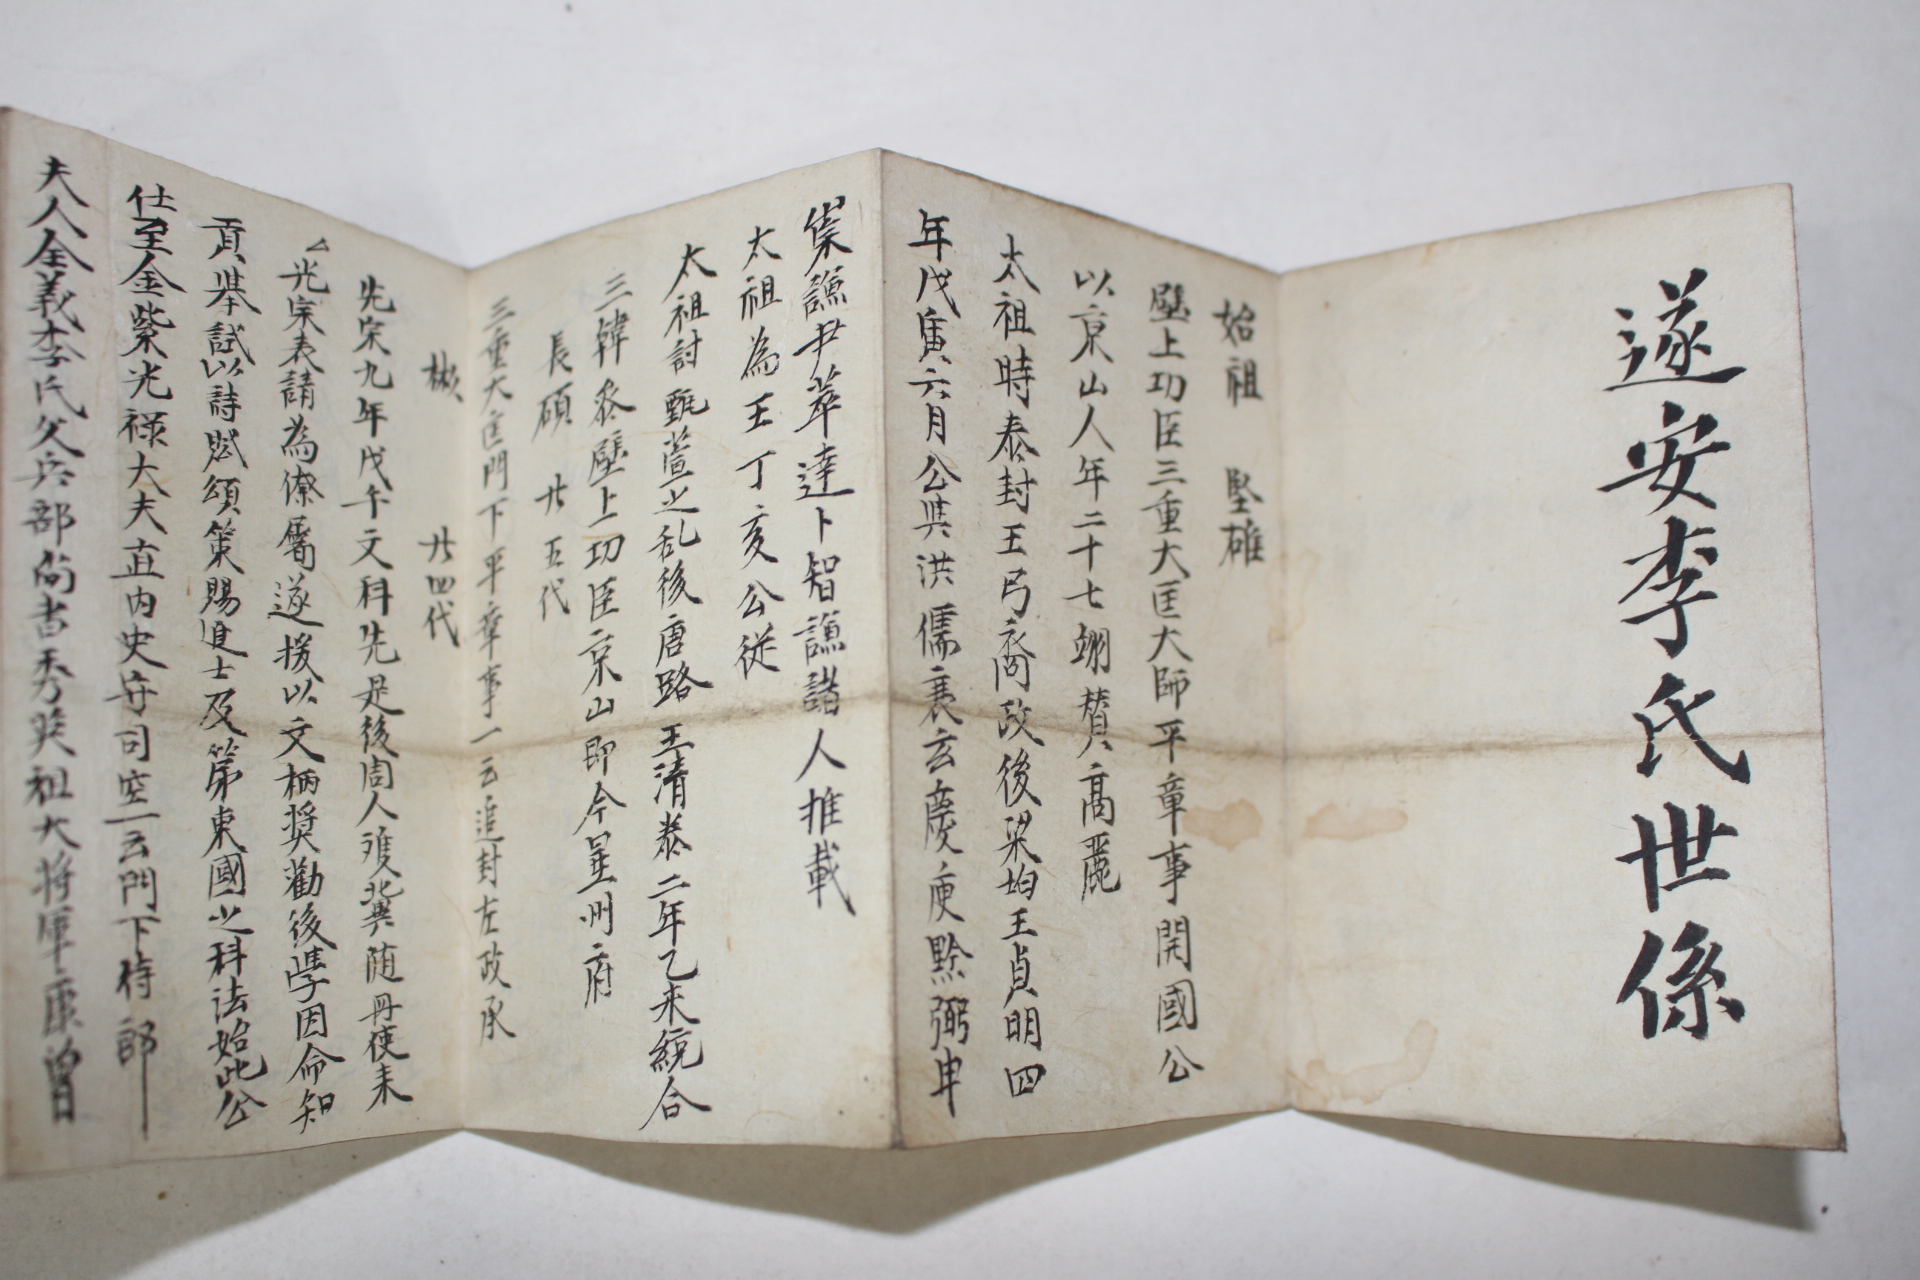 遂安李氏世係
始祖 堅雄
壁上功臣三重大匡大師平章事開國公
以京山人年二十七翊賛高麗
太祖時泰封王弓裔政後梁均王貞明四
年戊寅六月公與洪儒裵玄慶庾黔弼申
崇謙尹莘達卜智謙諸人推載
太祖為王丁亥公従
太祖討甄萱之乱後唐路王清泰二年乙未統合
三韓叅壁上功臣京山即今星州府
長碩 廿五代
三重大匡門下平章事一云追封左政承
彬 廿四代
光宗九年戊午文科先是後周人雙兾随冊使来
光宗表請為僚屬遂援以文柄奬勸後學因命知
貢擧試以詩賦頌策賜進士及第東國之科法始此公
仕至金紫光禄大夫直內史守司空一云門下侍郎
夫人全義李氏父兵部尚書秀英祖大将軍康曾